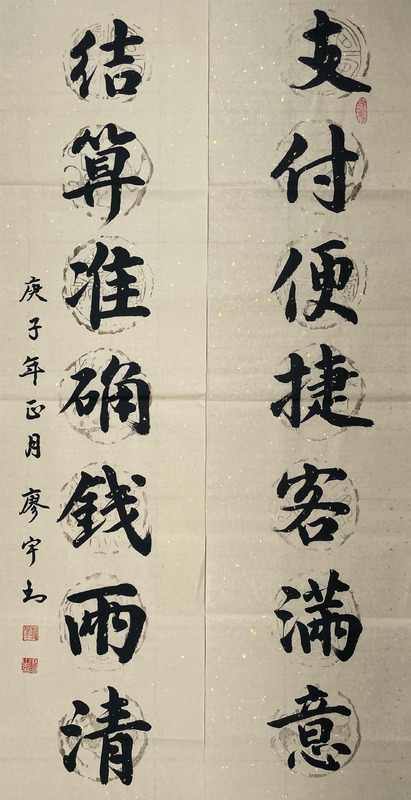 支付便捷客滿意
结算准确錢兩清
庚子年正月 廖宇